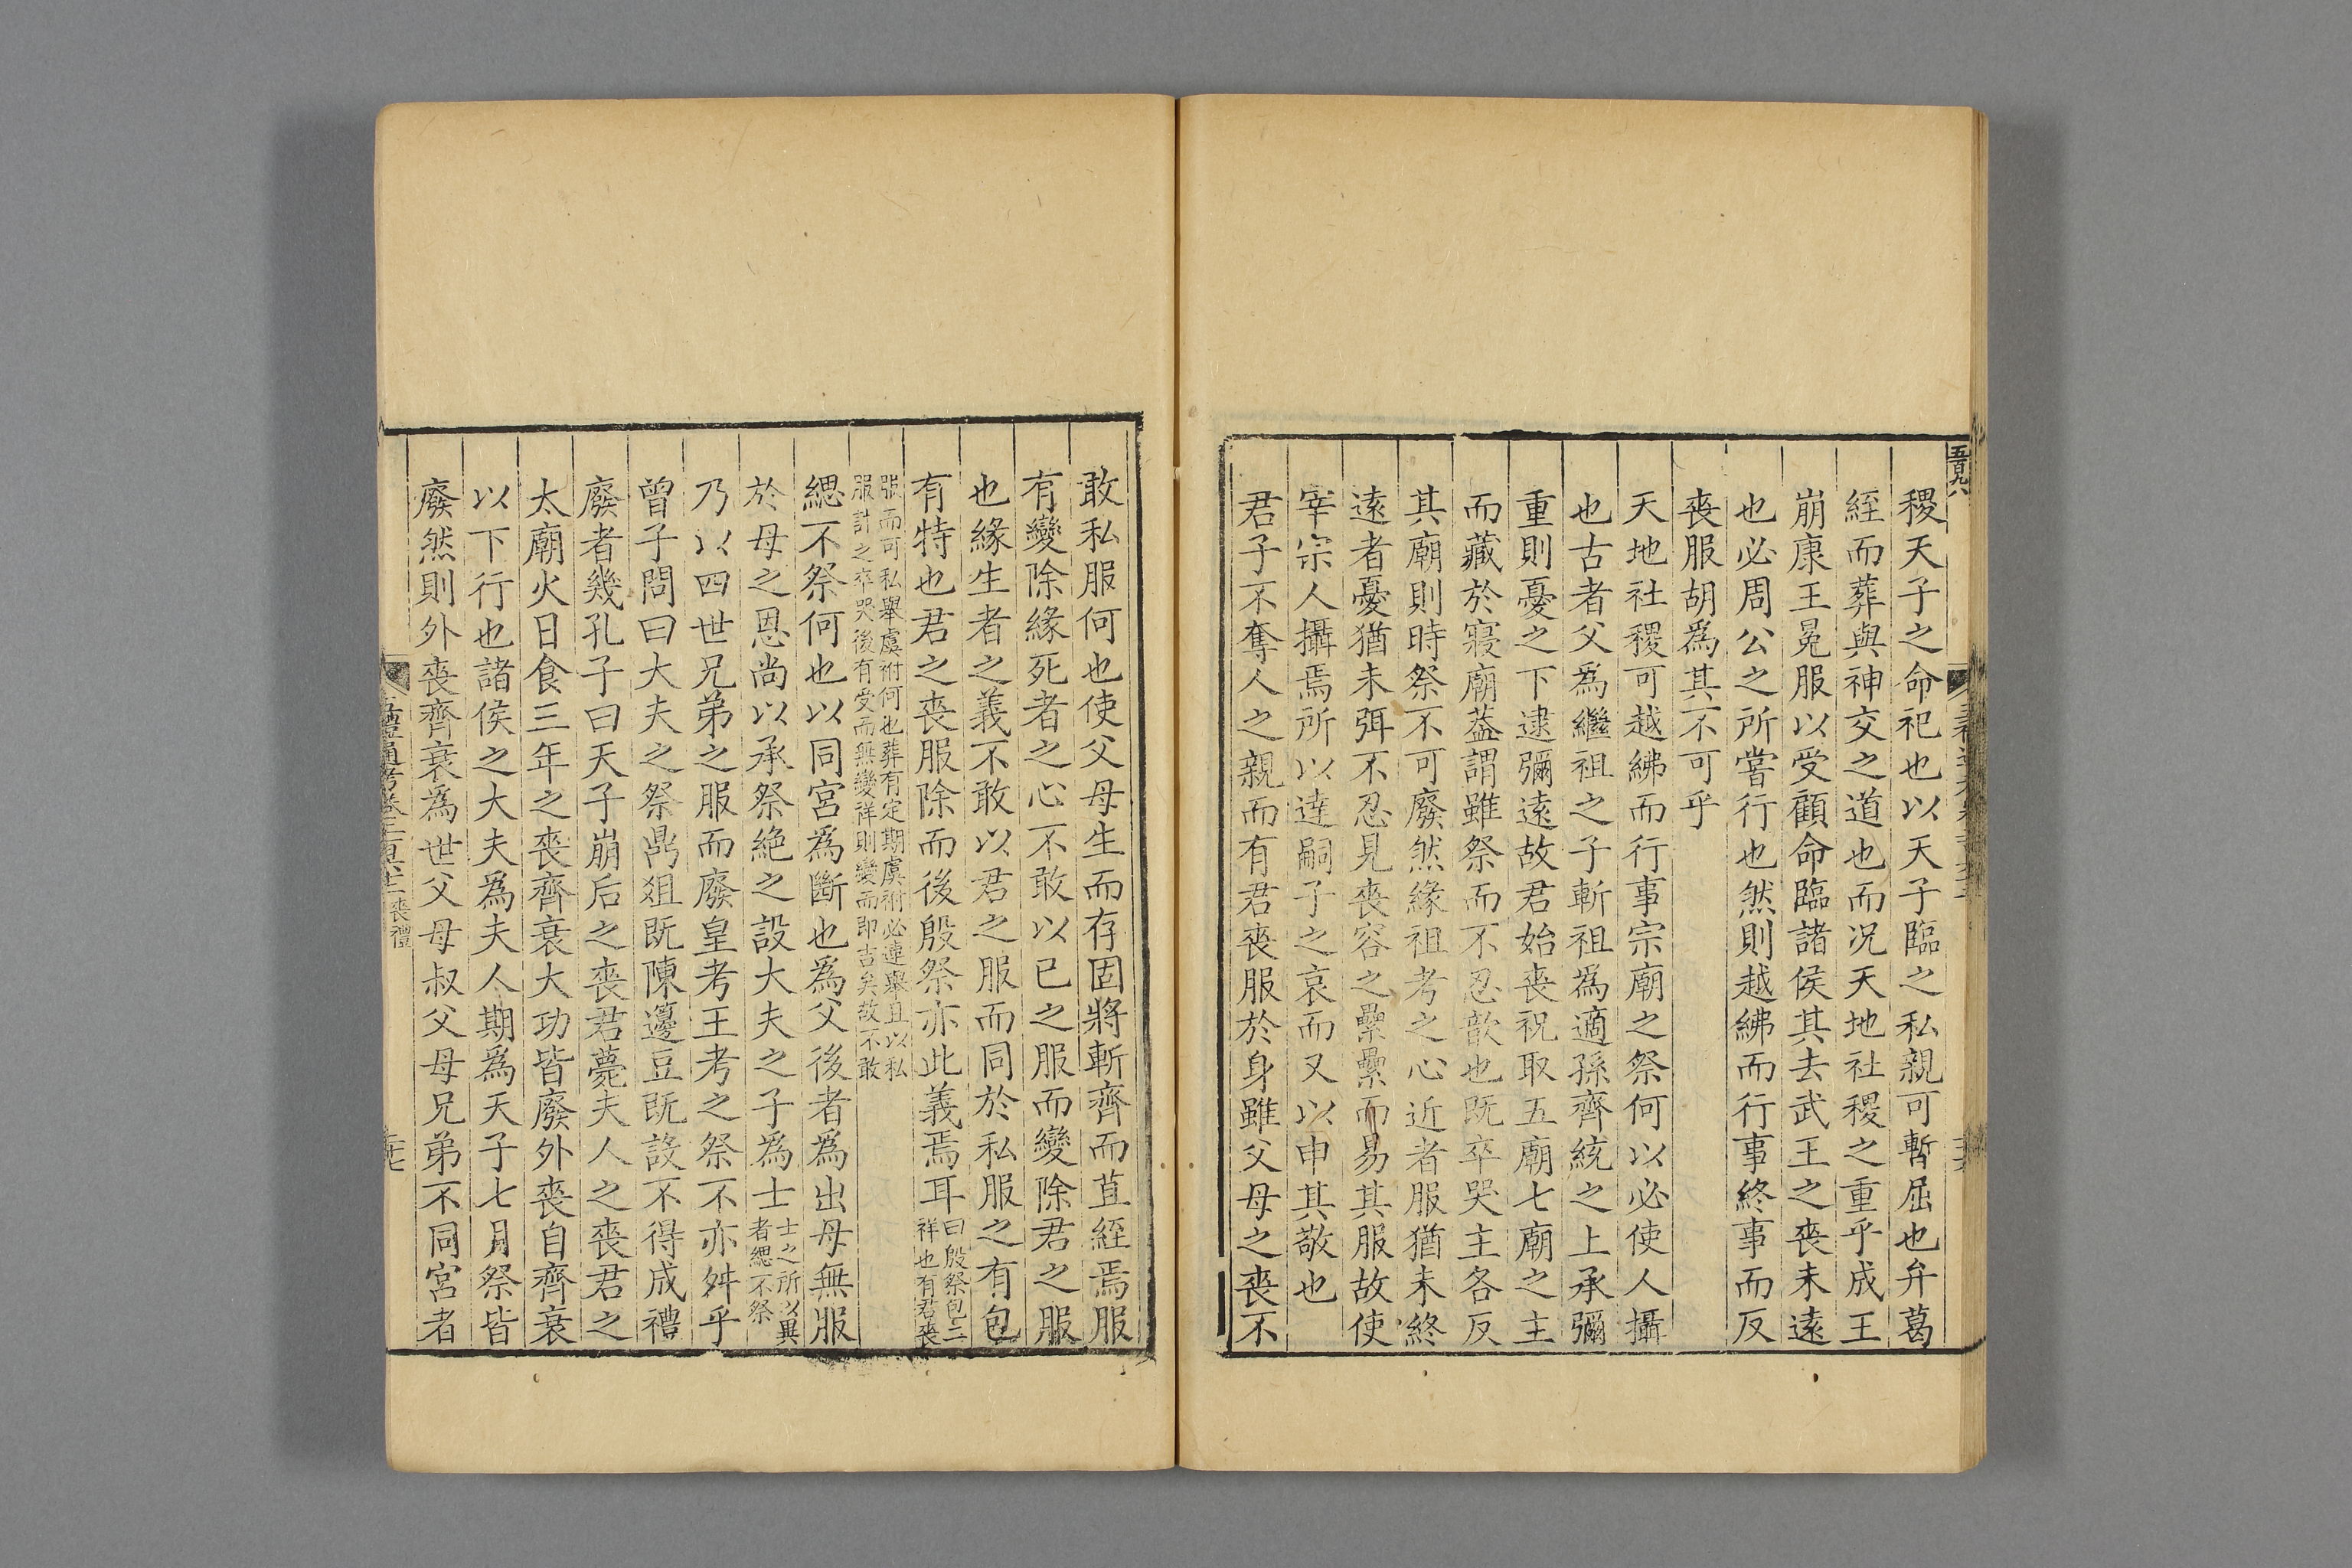 五百九八
稷天子之命祀也以天子臨之私親可暫屈也弁葛
絰而葬與神交之道也而况天地社稷之重乎成王
崩康王冕服以受顧命臨諸侯其去武王之喪未遠
也必周公之所嘗行也然則越紼而行事終事而反
喪服胡爲其不可乎
天地社稷可越紼而行事宗廟之祭何以必使人攝
也古者父爲繼祖之子斬祖爲適孫齊統之上承彌
重則憂之下逮彌遠故君始喪祝取五廟七廟之主
而藏於寢廟葢謂雖祭而不忍歆也既卒哭主各反
其廟則時祭不可廢然緣祖考之心近者服猶未終
遠者憂猶未弭不忍見喪容之纍纍而易其服故使
宰宗人攝焉所以達嗣子之哀而又以申其敬也
君子不奪人之親而有君喪服於身雖父母之喪不
敢私服何也使父母生而存固將斬齊而苴絰焉服
有變除緣死者之心不敢以已之服而變除君之服
也緣生者之義不敢以君之服而同於私服之有包
有特也君之喪服除而後殷祭亦此義焉耳曰殷祭包二
祥也有君喪
服而可私舉虞祔何也葬有定期虞祔必連舉且以私
服計之卒哭後有受而無變祥則變而即吉矣故不敢
緦不祭何也以同宮爲斷也爲父後者爲出母無服
於母之恩尚以承祭絶之設大夫之子爲士士之所以異
者緦不祭
乃以四世兄弟之服而廢皇考王考之祭不亦舛乎
曾子問曰大夫之祭鼎俎既陳籩豆既設不得成禮
廢者幾孔子曰天子崩后之喪君薨夫人之喪君之
太廟火日食三年之喪齊衰大功皆廢外喪自齊衰
以下行也諸侯之大夫爲夫人期爲天子七月祭皆
廢然則外喪齊衰爲世父母叔父母兄弟不同宮者
五禮通考卷二百六十二喪禮